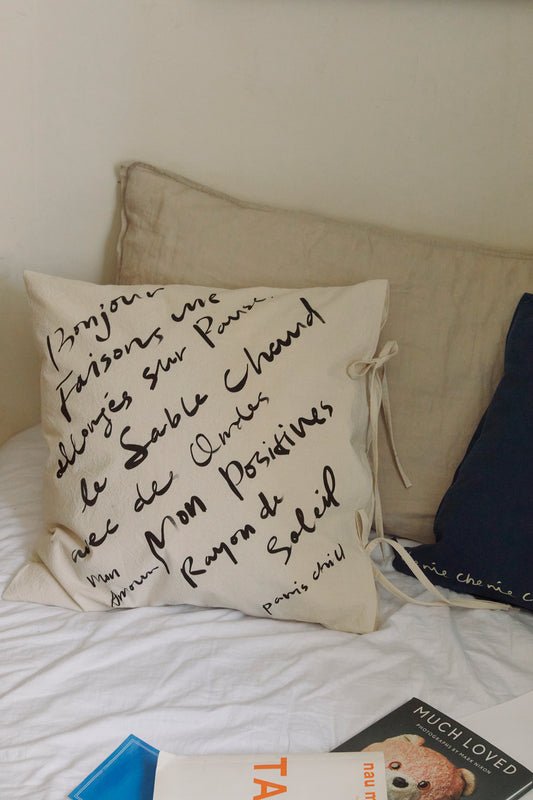 Bonjour
Faisons une
Pause
allongés sur
le Sable Chaud
avec de Ondes
Mon Positives
Mon Rayon de
Amour Soleil
paris chill
nie cherie c
MUCH LOVED
PHOTOGRAPHS BY MARK NIXON
TA
nau m